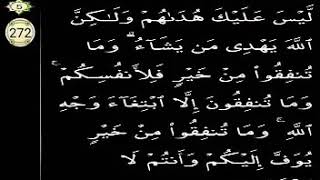 272
لَّيْسَ عَلَيْكَ هُدَىٰهُمْ وَلَـٰكِنَّ
ٱللَّهَ يَهْدِى مَن يَشَآءُ ۗ وَمَا
تُنفِقُوا۟ مِنْ خَيْرٍ فَلِأَنفُسِكُمْ ۚ
وَمَا تُنفِقُونَ إِلَّا ٱبْتِغَآءَ وَجْهِ
ٱللَّهِ ۚ وَمَا تُنفِقُوا۟ مِنْ خَيْرٍ
يُوَفَّ إِلَيْكُمْ وَأَنتُمْ لَا